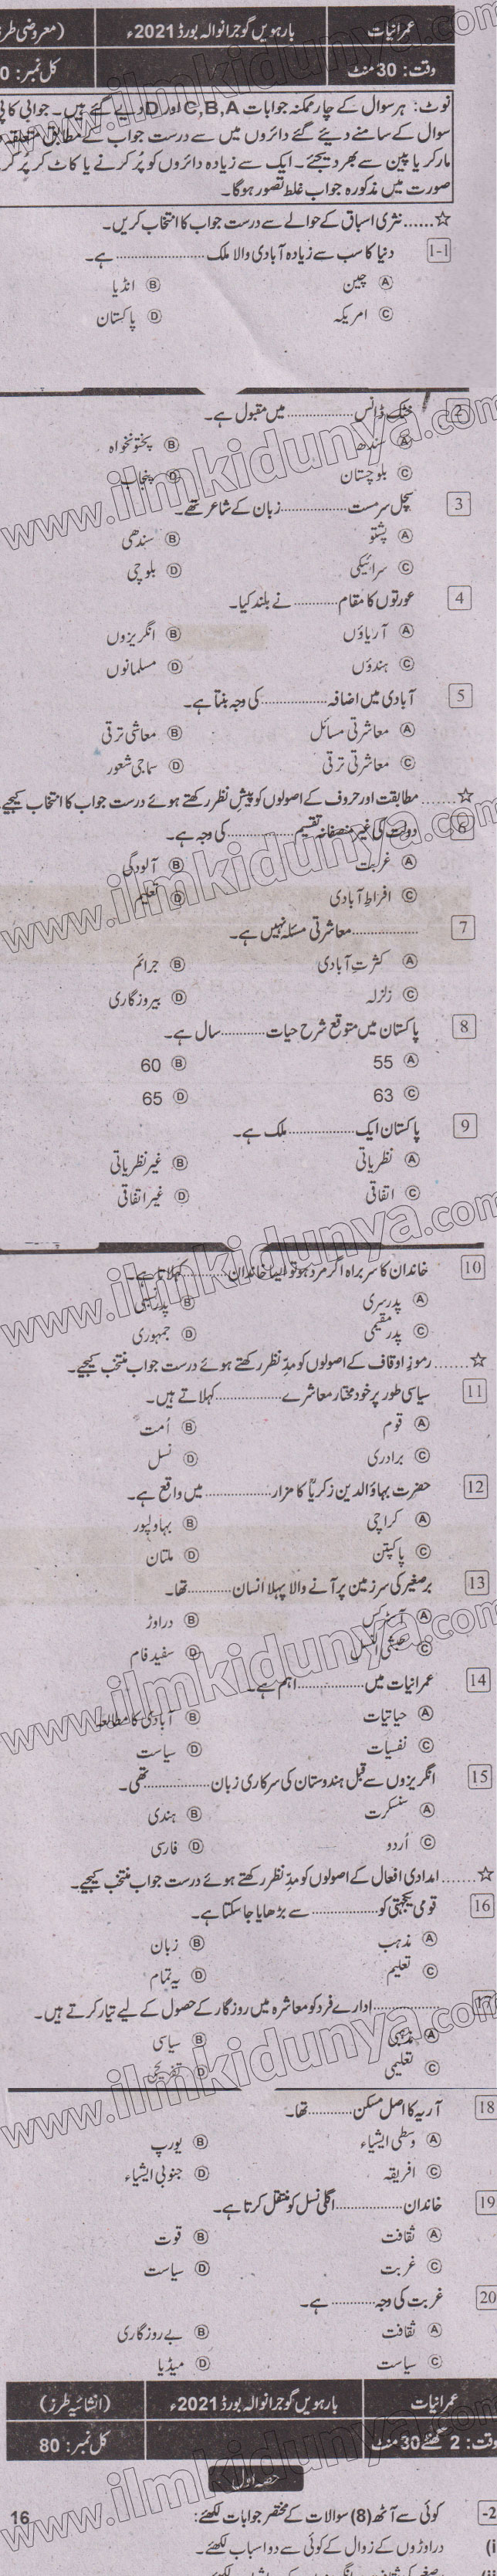 عمرانیات بارہویں گوجرانوالہ بورڈ 2021ء (معروضی طر
وقت: 30 منٹ کل نمبر: 0
نوٹ: ہر سوال کے چار ممکنہ جوابات C,B,A اور D دیے گئے ہیں۔ جوابی کاپی
سوال کے سامنے دیئے گئے دائروں میں سے درست جواب کے مطابق متعلقہ د
مارکر یا پین سے بھر دیجئے۔ ایک سے زیادہ دائروں کو پُر کرنے یا کاٹ کر پُر کر
صورت میں مذکورہ جواب غلط تصور ہوگا۔
☆...... نثری اسباق کے حوالے سے درست جواب کا انتخاب کریں۔
1-1 دنیا کا سب سے زیادہ آبادی والا ملک .................. ہے۔
A چین B انڈیا
C امریکہ D پاکستان
2 خٹک ڈانس .............. میں مقبول ہے۔
A سندھ B پختونخواہ
C بلوچستان D پنجاب
3 سچل سرمست .............. زبان کے شاعر تھے۔
A پشتو B سندھی
C سرائیکی D بلوچی
4 عورتوں کا مقام .......... نے بلند کیا۔
A آریاؤں B انگریزوں
C ہندوؤں D مسلمانوں
5 آبادی میں اضافہ .............. کی وجہ بنتا ہے۔
A معاشرتی مسائل B معاشی ترقی
C معاشرتی ترقی D سماجی شعور
☆...... مطابقت اور حروف کے اصولوں کو پیشِ نظر رکھتے ہوئے درست جواب کا انتخاب کیجیے
6 دولت کی غیر منصفانہ تقسیم .............. کی وجہ ہے۔
A غربت B آلودگی
C افراطِ آبادی D تعلیم
7 .............. معاشرتی مسئلہ نہیں ہے۔
A کثرتِ آبادی B جرائم
C زلزلہ D بیروزگاری
8 پاکستان میں متوقع شرح حیات .......... سال ہے۔
A 55 B 60
C 63 D 65
9 پاکستان ایک .............. ملک ہے۔
A نظریاتی B غیر نظریاتی
C اتفاقی D غیر اتفاقی
10 خاندان کا سربراہ اگر مرد ہو تو ایسا خاندان .......... کہلاتا ہے۔
A پدرسری B پدرنسبی
C پدر مقیمی D جمہوری
☆...... رموزِ اوقاف کے اصولوں کو مدِّنظر رکھتے ہوئے درست جواب منتخب کیجیے۔
11 سیاسی طور پر خود مختار معاشرے .............. کہلاتے ہیں۔
A قوم B اُمت
C برادری D نسل
12 حضرت بہاؤالدین زکریاؒ کا مزار .............. میں واقع ہے۔
A کراچی B بہاولپور
C پاکپتن D ملتان
13 برصغیر کی سرزمین پر آنے والا پہلا انسان .......... تھا۔
A B دراوڑ
C حبشی النسل D سفید فام
14 عمرانیات میں .............. اہم ہے۔
A حیاتیات B آبادی کا مطالعہ
C نفسیات D سیاست
15 انگریزوں سے قبل ہندوستان کی سرکاری زبان .............. تھی۔
A سنسکرت B ہندی
C اُردو D فارسی
☆...... امدادی افعال کے اصولوں کو مدِّنظر رکھتے ہوئے درست جواب منتخب کیجیے۔
16 قومی یکجہتی کو .............. سے بڑھایا جا سکتا ہے۔
A مذہب B زبان
C تعلیم D یہ تمام
17 .............. ادارے فرد کو معاشرہ میں روزگار کے حصول کے لیے تیار کرتے ہیں۔
A مذہبی B سیاسی
C تعلیمی D تفریحی
18 آریہ کا اصل مسکن .......... تھا۔
A وسطی ایشیاء B یورپ
C افریقہ D جنوبی ایشیاء
19 خاندان .............. اگلی نسل کو منتقل کرتا ہے۔
A ثقافت B قوت
C غربت D سیاست
20 غربت کی وجہ .......... ہے۔
A ثقافت B بے روزگاری
C سیاست D میڈیا
عمرانیات بارہویں گوجرانوالہ بورڈ 2021ء (انشائیہ طرز)
وقت: 2 گھنٹے 30 منٹ کل نمبر: 80
حصہ اول
2- کوئی سے آٹھ (8) سوالات کے مختصر جوابات لکھئے: 16
(i دراوڑوں کے زوال کے کوئی سے دو اسباب لکھئے۔
www.ilmkidunya.com
www.ilmkidunya.com
www.ilmkidunya.com
www.ilmkidunya.com
www.ilmkidunya.com
www.ilmkidunya.com
www.ilmkidunya.com